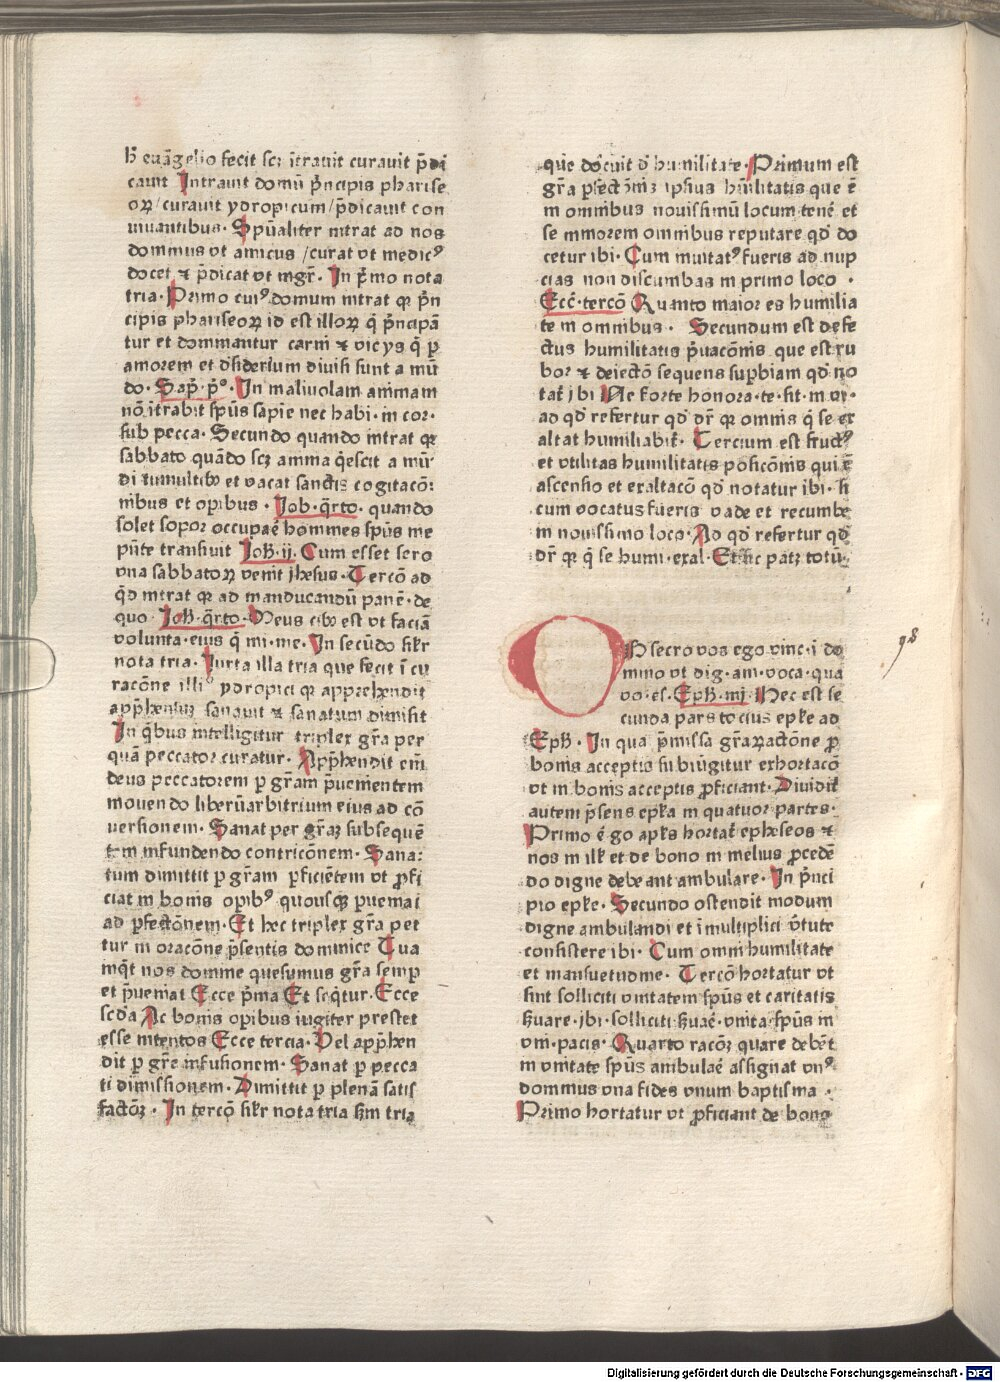 h̄ euāgelio fecit scꝫ ītrauit curauit p̄di
cauit Intrauit domū p̄ncipis pharise
oꝝ/curauit ydropicum/p̄dicauit con
uiuantibus. Sp̄ualiter intrat ad nos
dominus vt amicus /curat vt medicꝰ
docet ⁊ p̄dicat vt mgr̄. In p̄mo nota
tria. Primo cuiꝰ domum intrat qꝛ p̄n
cipis phariseoꝝ id est illoꝝ q̄ p̄ncipā
tur et dominantur carni ⁊ vicijs q̄ ꝑ
amorem et desiderium diuisi sunt a mū
do. Sap̄. p̄º. In maliuolam animam
nō ītrabit sp̄us sapīe nec habi. in cor.
sub pecca. Secundo quando intrat qꝛ
sabbato quādo scꝫ anima q̄escit a mū
di tumultibꝰ et vacat sanctis cogitacōi
nibus et oꝑibus. Job. q̄rto. quando
solet sopor occupaē homines sp̄us me
pn̄te transiuit Joh̄. ij. Cum esset sero
vna sabbatoꝝ venit jhesus. Tercō ad
qd̄ intrat qꝛ ad manducandū panē. de
quo. Joh̄. q̄rto. Meus cibꝰ est vt faciā
volunta. eius q̄ mi. me. In secūdo sil̄r
nota tria. Iuxta illa tria que fecit ī cu
racōne illiꝰ ydropici qꝛ apprehendit
app̄hensū sanauit ⁊ sanatum dimisit
In q̄bus intelligitur triplex gr̄a per
quā peccator curatur. App̄hendit em̄
deus peccatorem ꝑ gr̄am p̄uenientem
mouendo liberū arbitrium eius ad cō
uersionem. Sanat per gr̄aꝫ subsequē
tem infundendo contricōnem. Sana:
tum dimittit ꝑ gr̄am ꝓficiētem vt ꝓfi
ciat in bonis oꝑibꝰ quousqꝫ ꝑueniāt
ad ꝑfectōnem. Et hec triplex gr̄a pet
tur in oracōne p̄sentis dominice Tua
inq̄t nos domine quesumus gr̄a semꝑ
et p̄ueniat Ecce p̄ma Et seq̄tur. Ecce
scd̄a Ac bonis oꝑibus iugiter prestet
esse intentos Ecce tercia. Vel app̄hen
dit ꝑ gr̄e infusionem. Sanat ꝑ pecca
ti dimissionem. Dimittit ꝑ plenā satis
factōꝫ. In tercō sil̄r nota tria scd̄m tria
que docuit d̄ humilitate. Primum est
gr̄a ꝑfectōnis ipsius hūilitatis que ē
in omnibus nouissimū locum tenē et
se minorem omnibus reputare qd̄ do
cetur ibi. Cum inuitatꝰ fueris ad nup
cias non discumbas in primo loco.
Ecc̄. tercō Quanto maior es humilia
te in omnibus. Secundum est defe
ctus humilitatis p̄uacōnis que est ru
bor ⁊ deiectō sequens suꝑbiam qd̄ no
tat̄ ibi Ne forte honora. te. sit. in vi.
ad qd̄ refertur qd̄ dr̄ qꝛ omnis q̄ se ex
altat humiliabit̄. Tercium est fructꝰ
et vtilitas humilitatis posicōnis qui ē
ascensio et exaltacō qd̄ notatur ibi. si
cum vocatus fueris vade et recumbe
in nouissimo loco. Ad qd̄ refertur qd̄
dr̄ qꝛ q̄ se humi. exal. Et sic patꝫ totū.
OBsecro vos ego vinc. ī do
mino vt dig. am. voca. qua
vo. es. Eph̄. iiij. Hec est se
cunda pars tocius epl̄e ad
Eph̄. In qua p̄missa gr̄aꝝ actōne ꝓ
bonis acceptis subiūgitur exhortacō
vt in bonis acceptis ꝓficiant. Diuidit̄
autem p̄sens epl̄a in quatuor partes.
Primo ēgo apl̄s hortat̄ epheseos ⁊
nos in ill̄ et de bono in melius ꝓcedē
do digne debeant ambulare. In p̄nci
pio epl̄e. Secundo ostendit modum
digne ambulandi et ī multiplici v̄tute
consistere ibi. Cum omni humilitate
et mansuetudine. Tercō hortatur vt
sint solliciti vnitatem sp̄us et caritatis
s̄uare. ibi. solliciti s̄uaē. vnita. sp̄us in
vin. pacis. Quarto racōꝫ quare debēt
in vnitate sp̄us ambulaē assignat vnꝰ
dominus vna fides vnum baptisma.
Primo hortatur vt ꝓficiant de bono
98
Digitalisierung gefördert durch die Deutsche Forschungsgemeinschaft - DFG